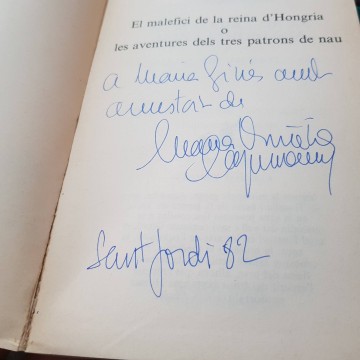 El malefici de la reina d'Hongria
o
les aventures dels tres patrons de nau
a Maria Ginés amb
amistat de
Maria Aurèlia
Capmany
Sant Jordi 82